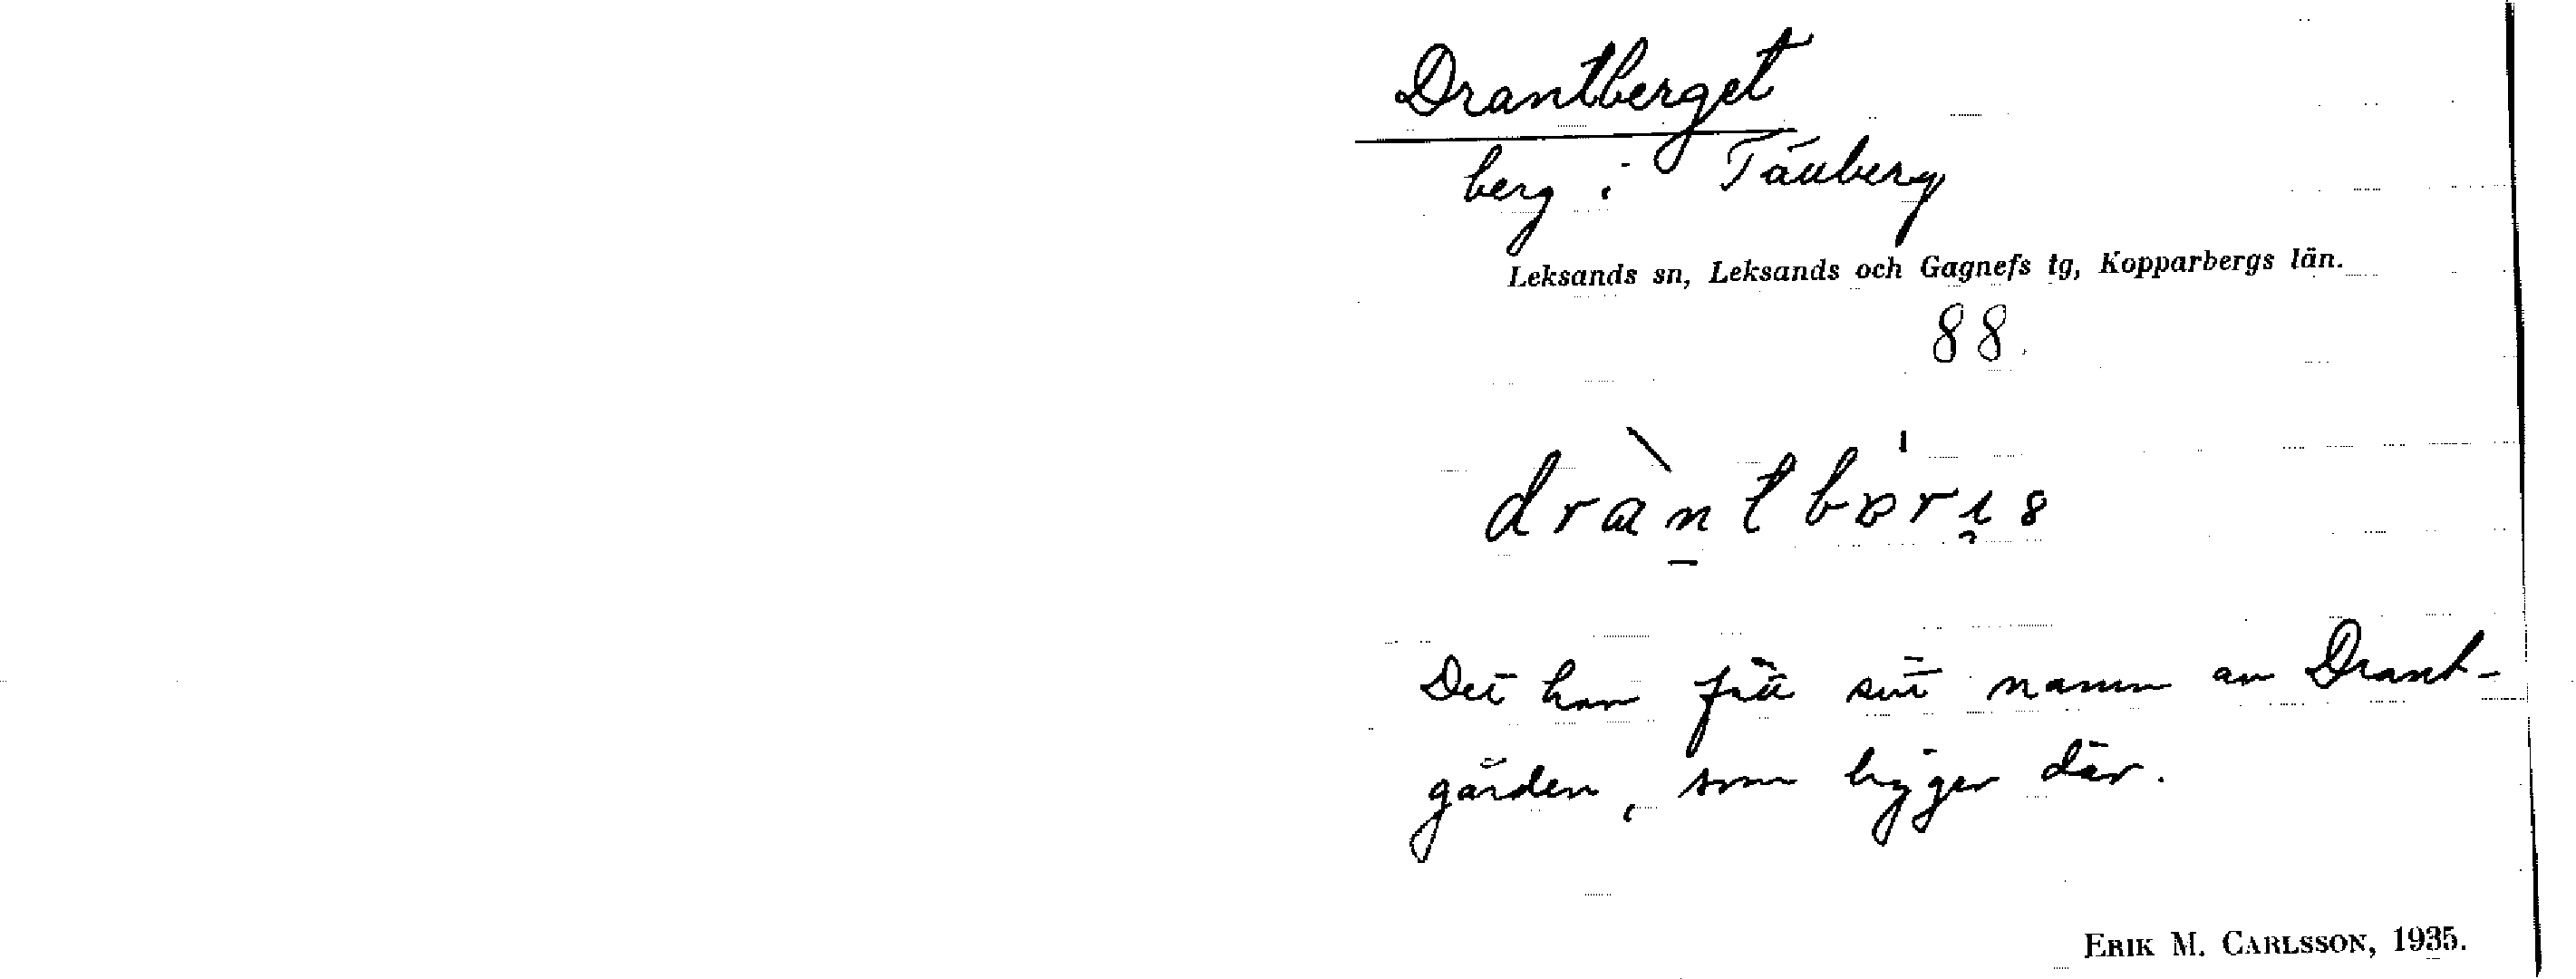 Drantberget
berg i Täuberg
Leksands sn, Leksands och Gagnefs tg, Kopparbergs län.
88.
Det har fått sitt namn av Drant-
gården, som ligger där.
ERIK M. CARLSSON, 1935.